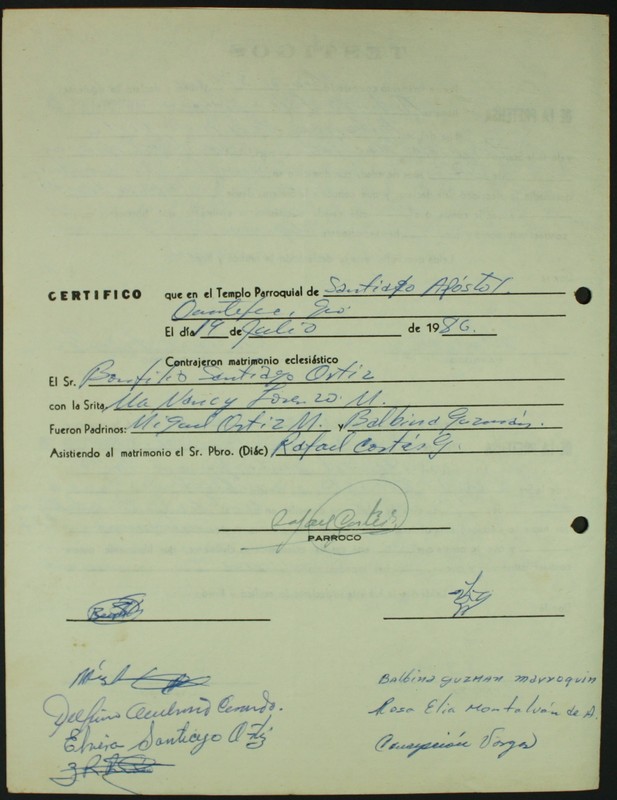 CERTIFICO que en el Templo Parroquial de Santiago Apóstol.
Gto
El día 19 de Julio de 1986.
Contrajeron matrimonio eclesiástico
El Sr. Bonfilio Santiago Ortiz
con la Srita. Ma Nancy Lorenzo M.
Fueron Padrinos: Miguel Ortiz M. y Balbina Guzmán.
Asistiendo al matrimonio el Sr. Pbro. (Diác) Rafael Cortés G.
Rafael Cortés
PARROCO
Balbina Guzman Marroquin
Delfino
Rosa Elia Montalván de A.
Elvira Santiago Ortiz
Concepción Vargas